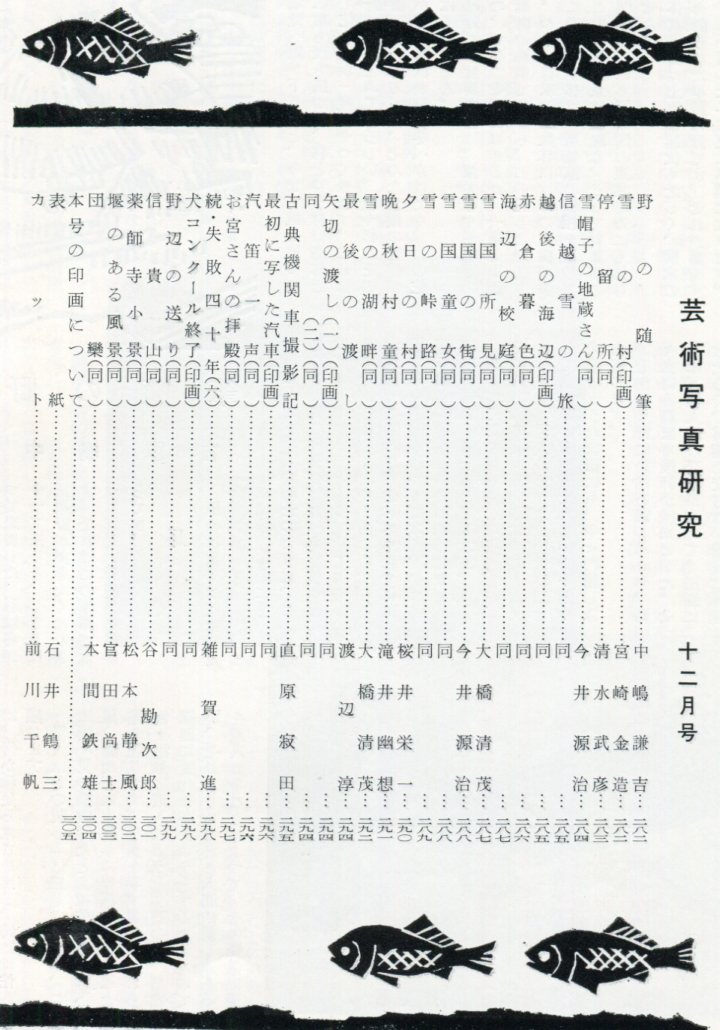 芸術写真研究 十二月号
野の随筆……中嶋謙吉…二八二
雪の村(印画)……宮崎金造…二八二
停留所(同)……清水武彦…二八三
雪帽子の地蔵さん(同)……今井源治…二八四
信越雪の旅……同…二八五
越後の海辺(印画)……同…二八五
赤倉暮色(同)……同…二八六
海辺の校庭(同)……同…二八七
雪国所見(同)……大橋清茂…二八七
雪国の街(同)……今井源治…二八八
雪国童女(同)……同…二八八
雪の峠路(同)……同…二八九
夕日の村(同)……桜井栄一…二九〇
晩秋村童(同)……滝井幽想…二九一
雪の湖畔(同)……大橋清茂…二九二
最後の渡し……渡辺淳…二九四
矢切の渡し(一)(印画)……同…二九四
同(二)(同)……同…二九四
古典機関車撮影記……直原寂田…二九五
最初に写した汽車(印画)……同…二九六
汽笛一声(同)……同…二九六
お宮さんの拝殿(同)……同…二九七
続・失敗四十年(六)……雑賀進…二九八
犬コンクール終了(印画)……同…二九八
野辺の送り(同)……同…二九九
信貴山(同)……谷勘次郎…三〇一
薬師寺小景(同)……松本静風…三〇二
堰のある風景(同)……官田尚士…三〇三
団欒(同)……本間鉄雄…三〇四
本号の印画について……三〇五
表紙……石井鶴三
カット……前川千帆